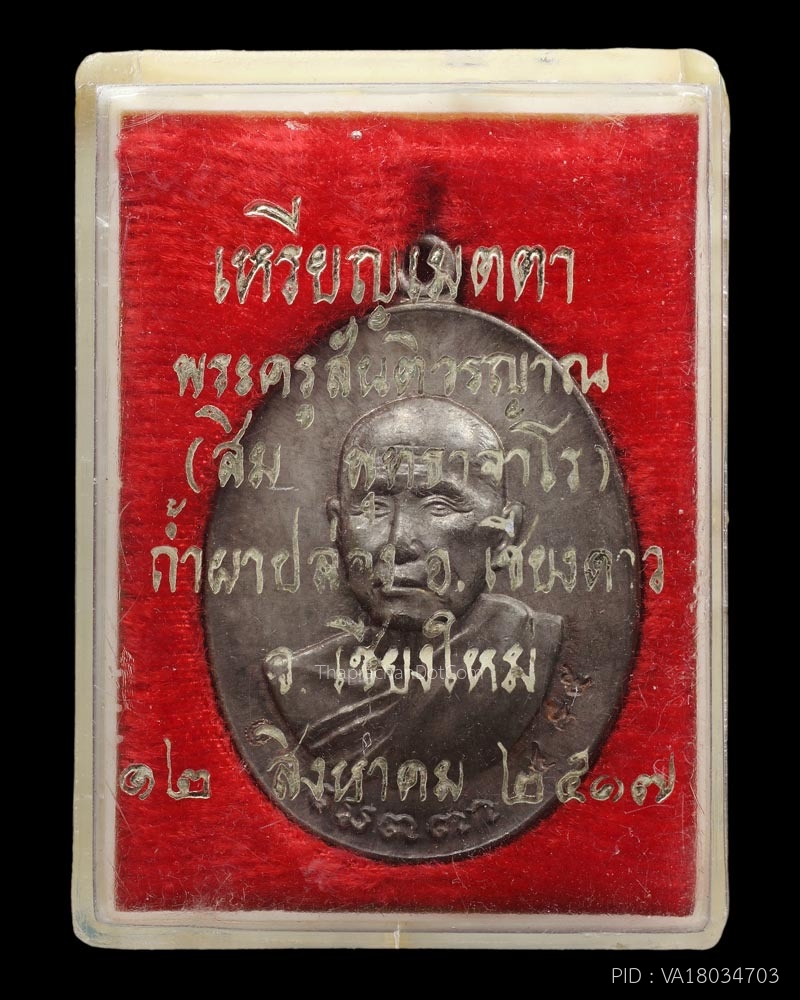 เหรียญเมตตา
พระครูสันติวรญาณ
(สิม พุทธาจาโร)
ถ้ำผาปล่อง อ. เชียงดาว
จ. เชียงใหม่
ThaprachanDotCom
๑๒ สิงหาคม ๒๕๑๗
เมตตา
PID : VA18034703